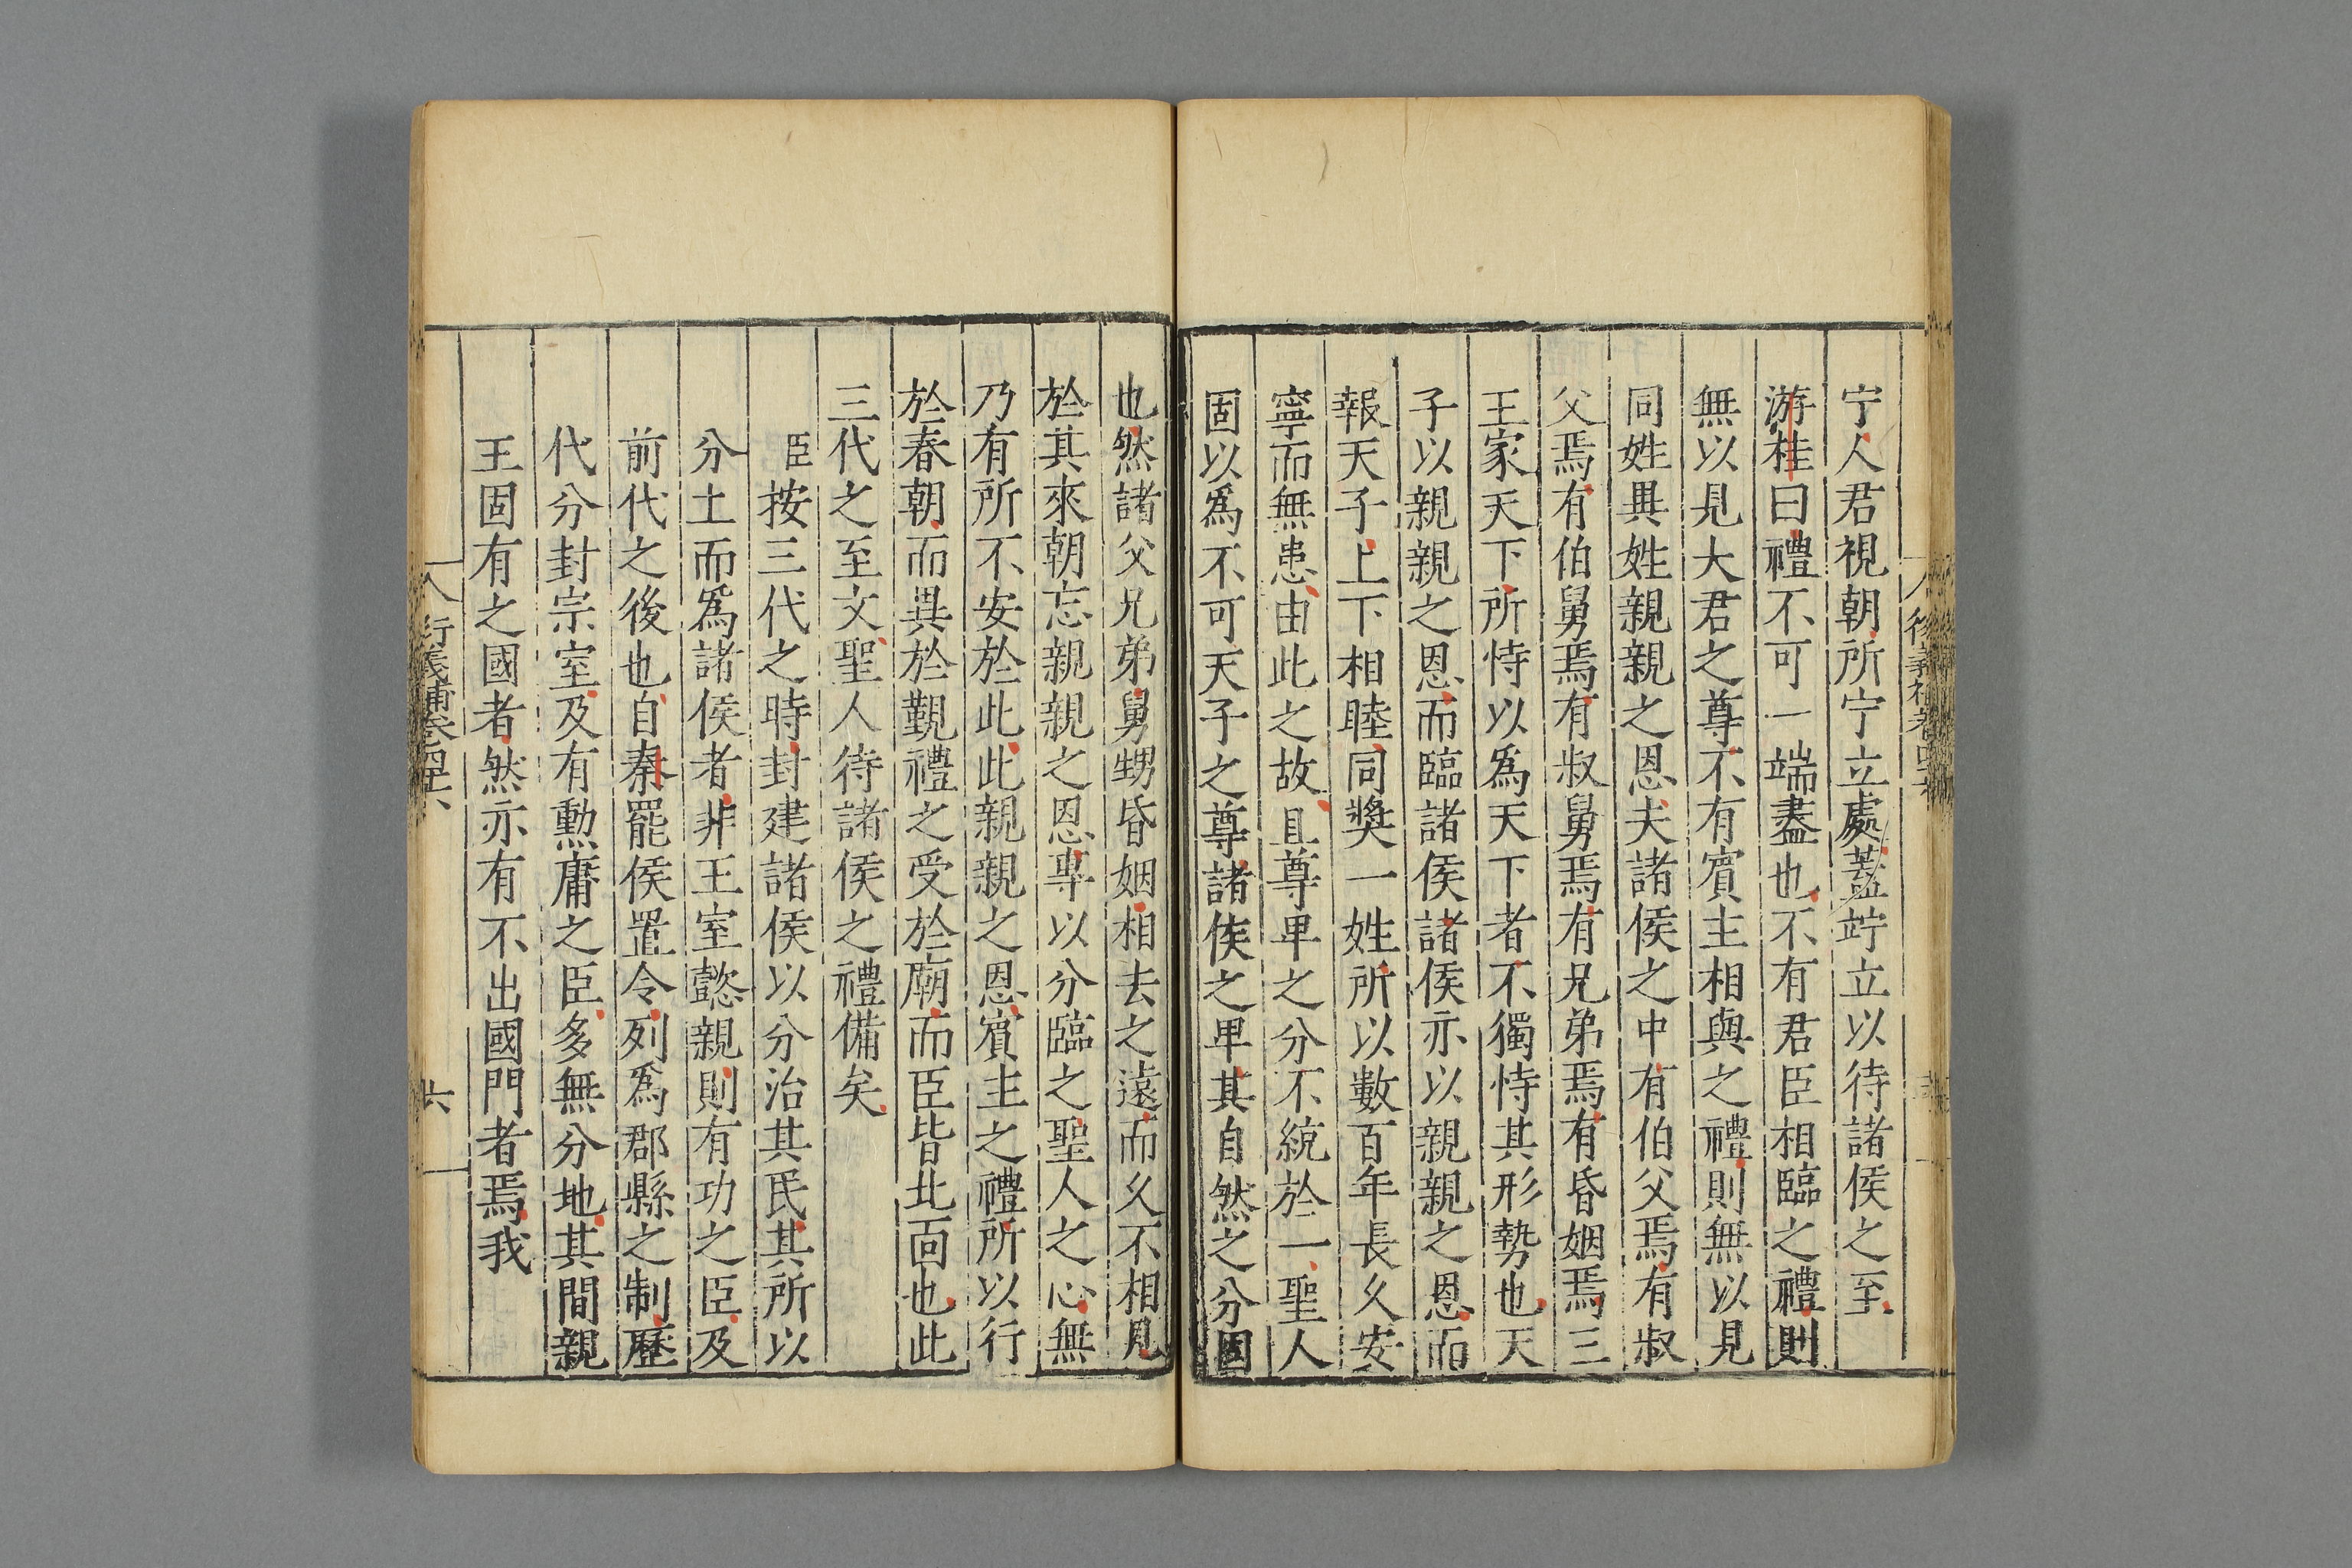 宁人君視朝所宁立處蓋竚立以待諸侯之至
游桂曰禮不可一端盡也不有君臣相臨之禮則
無以見大君之尊不有賓主相與之禮則無以見
同姓異姓親親之恩夫諸侯之中有伯父焉有叔
父焉有伯舅焉有叔舅焉有兄弟焉有昏姻焉三
王家天下所恃以爲天下者不獨恃其形勢也天
子以親親之恩而臨諸侯諸侯亦以親親之恩而
報天子上下相睦同獎一姓所以數百年長久安
寧而無患由此之故且尊卑之分不統於一聖人
固以爲不可天子之尊諸侯之卑其自然之分固
也然諸父兄弟舅甥昏姻相去之遠而久不相見
於其來朝忘親親之恩專以分臨之聖人之心無
乃有所不安於此此親親之恩賓主之禮所以行
於春朝而異於覲禮之受於廟而臣皆北面也此
三代之至文聖人待諸侯之禮備矣
臣按三代之時封建諸侯以分治其民其所以
分土而爲諸侯者非王室懿親則有功之臣及
前代之後也自秦罷侯置令列爲郡縣之制歷
代分封宗室及有勲庸之臣多無分地其間親
王固有之國者然亦有不出國門者焉我
衍義補卷四十六
六